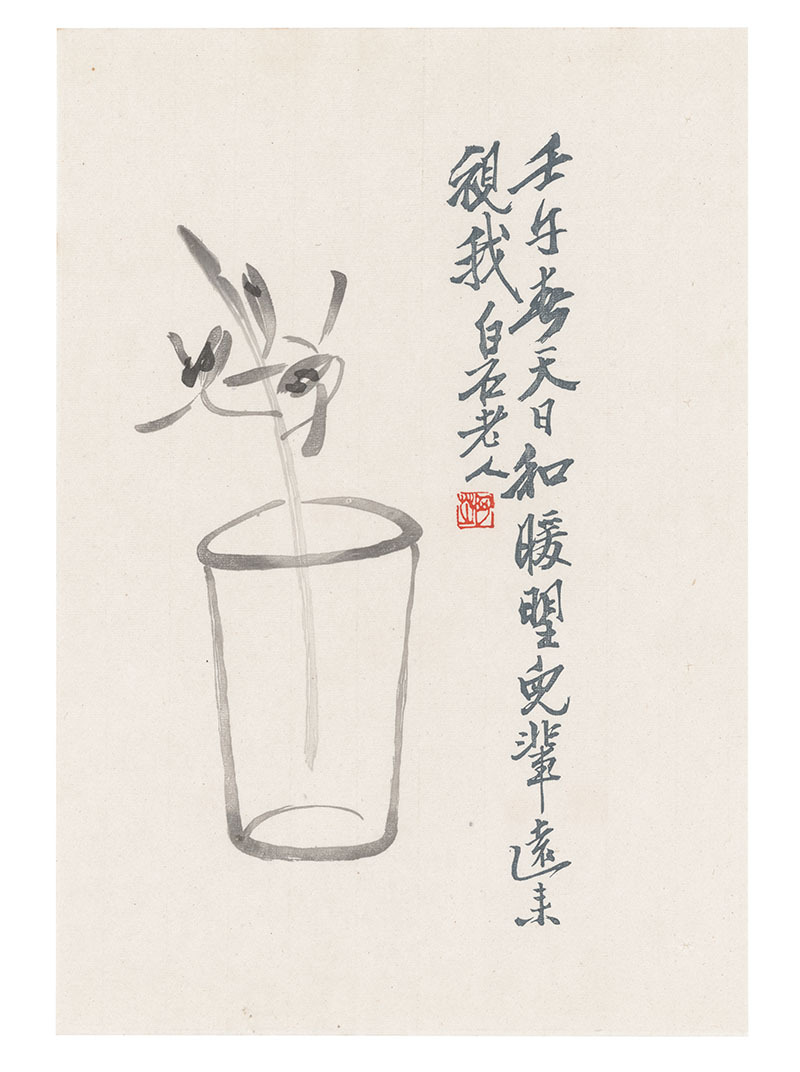 壬午春天日和暖望兒輩遠來
視我白石老人
阿芝